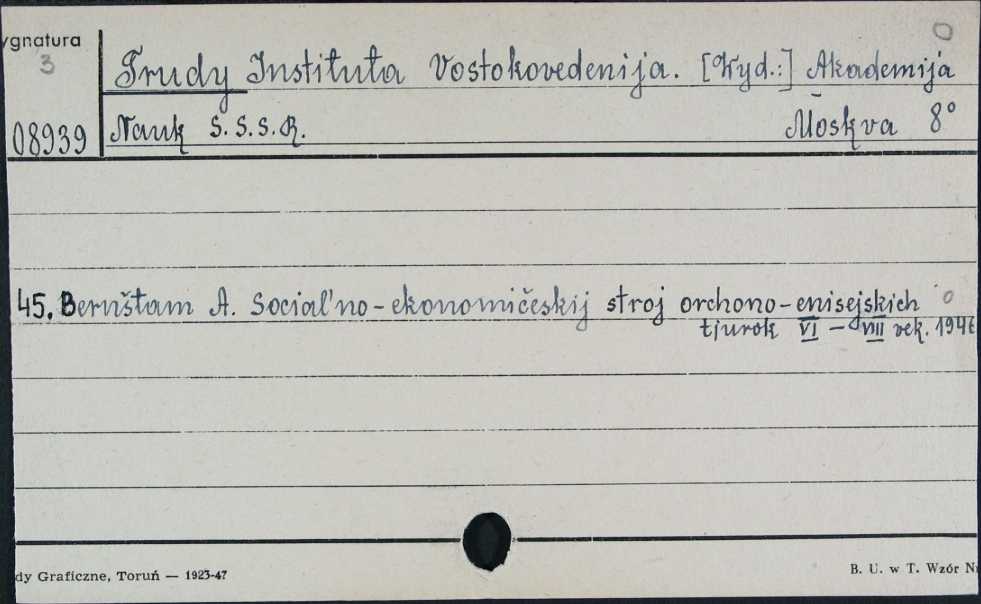 ygnatura
3
08939
Trudy Instituta Vostokovedenija. [Wyd.:] Akademija
Nauk S.S.S.R. Moskva 8°
0
45. Bernštam A. Social'no-ekonomičeskij stroj orchono-enisejskich 0
tjurok VI – VIII vek. 1946
dy Graficzne, Toruń — 1923-47
B. U. w T. Wzór N